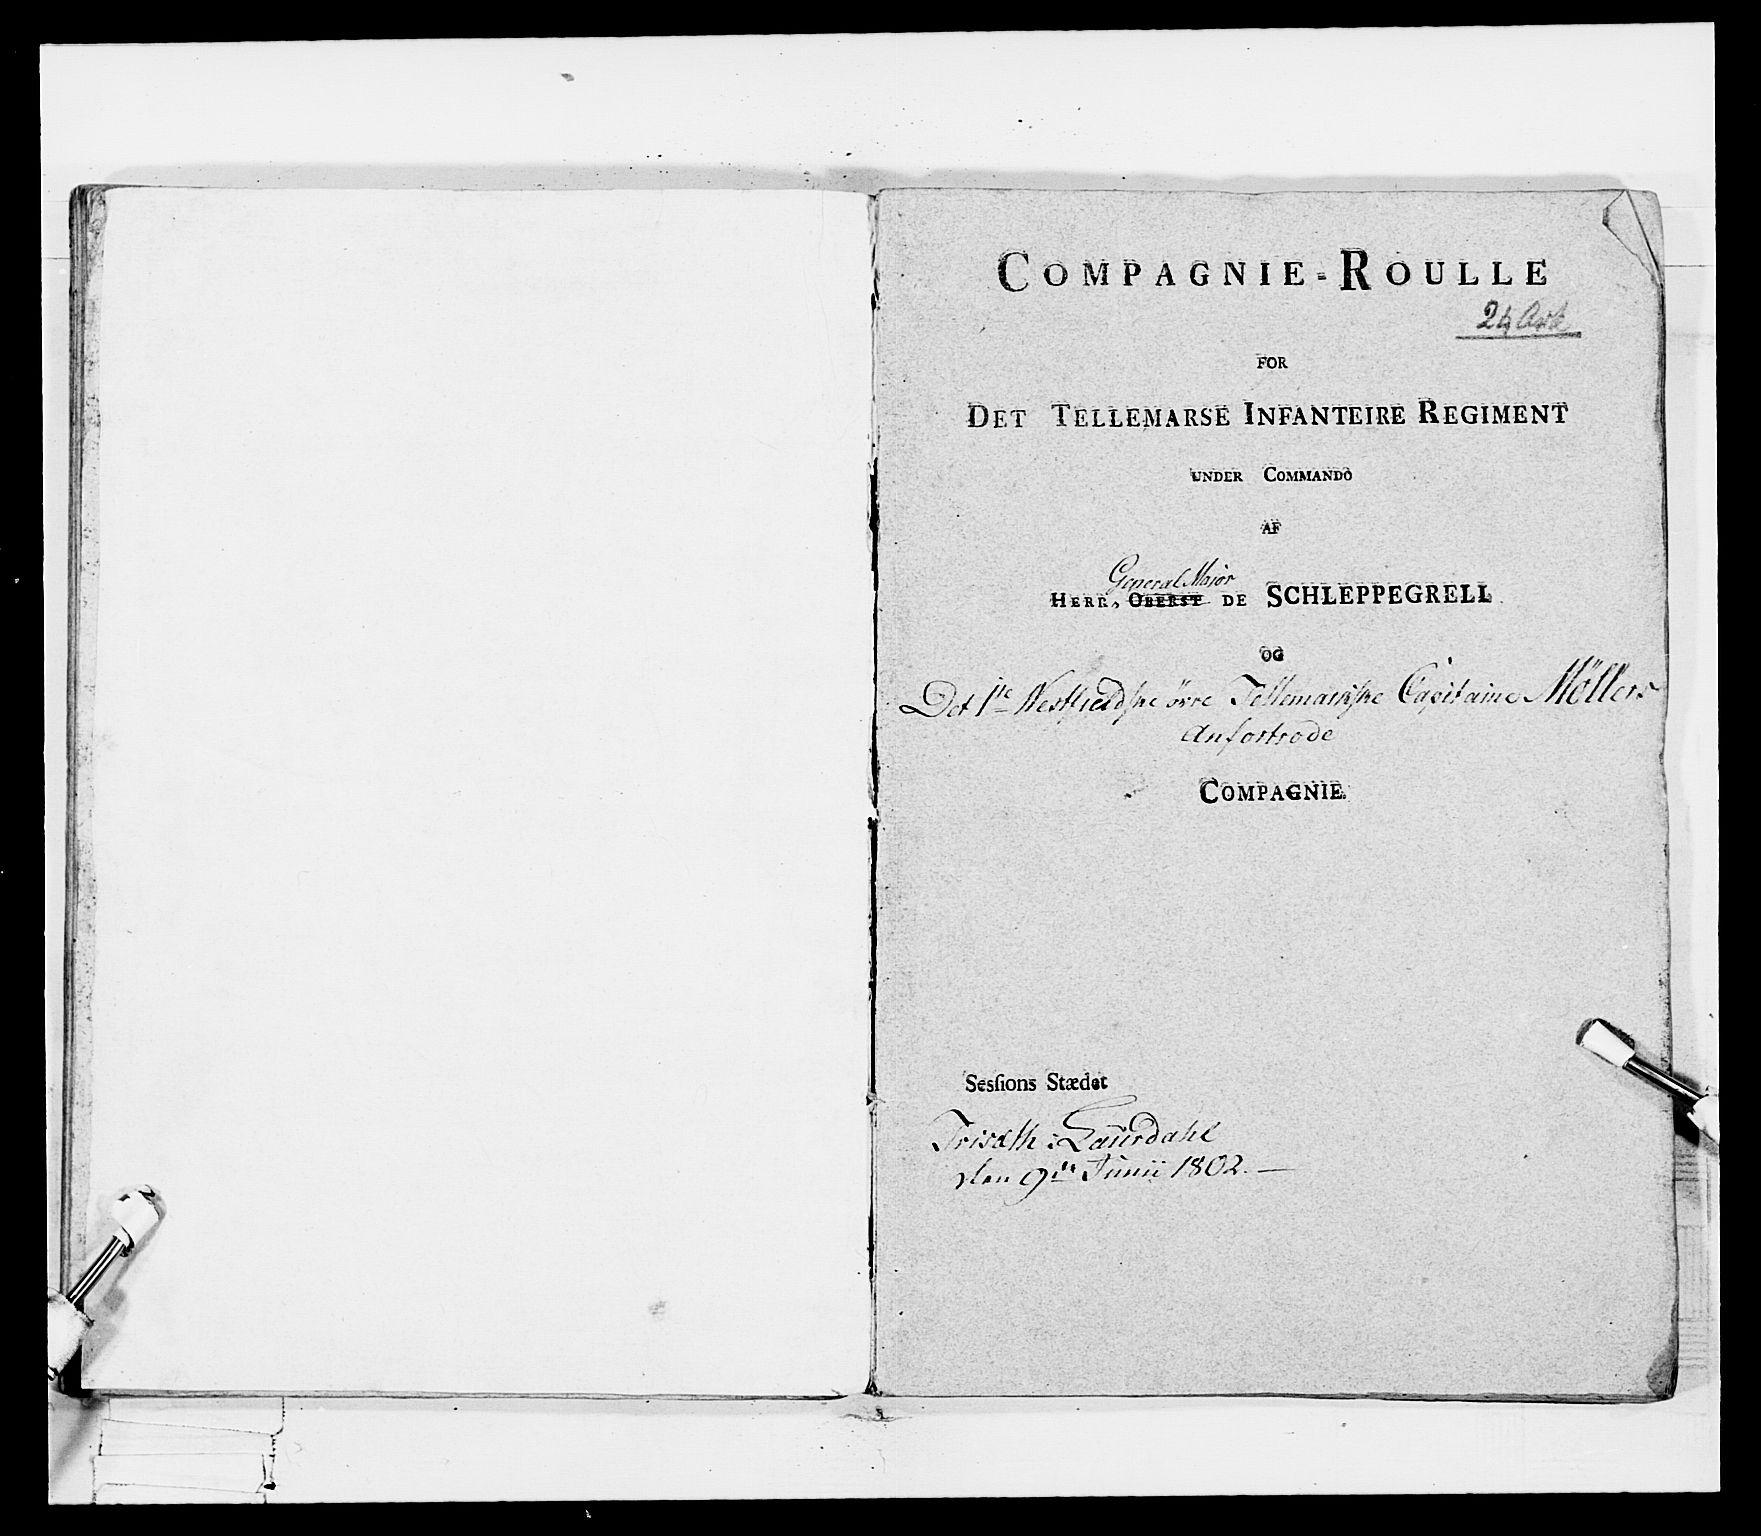 COMPAGNIE=ROULLE
24 Ark
FOR
DET TELLEMARSE INFANTEIRE REGIMENT
UNDER COMMANDO
AF
General Major
HERR, OBERST DE SCHLEPPEGRELL
OG
Det 1te Westfieldske øvre Tellemarkske Capitaine Møllers
Anfortrode
COMPAGNIE.
Sesſions Stædet
Trisæth i Laurdahl
den 9de Junii 1802. —